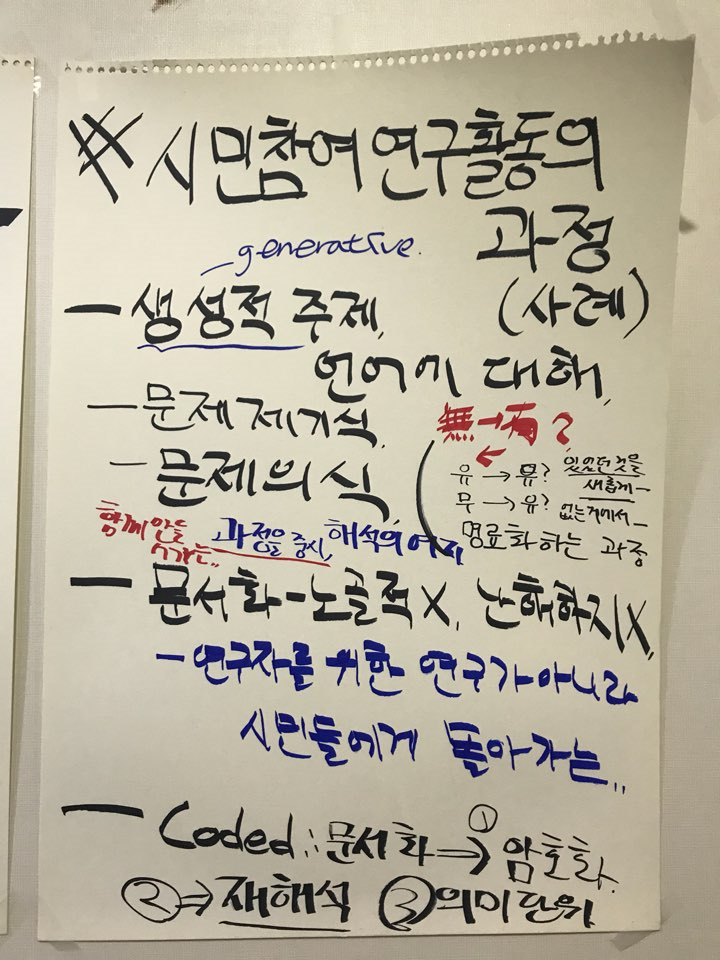 # 시민참여 연구활동의
과정
(사례)
generative.
- 생성적 주제,
언어에 대해,
- 문제제기식,
- 문제의식,
無→有?
유 → 유?
무 → 유?
있었던 것을
새롭게 -
없는거에서 -
명료화하는 과정
함께 만들
어가는..
과정을 중시, 해석의 여지
- 문서화 - 노골적 X, 난해하지 X,
- 연구자를 위한 연구가 아니라
시민들에게 돌아가는..
- Coded : 문서화 ⇒ ① 암호화.
② ⇒ 재해석 ③ 의미단위